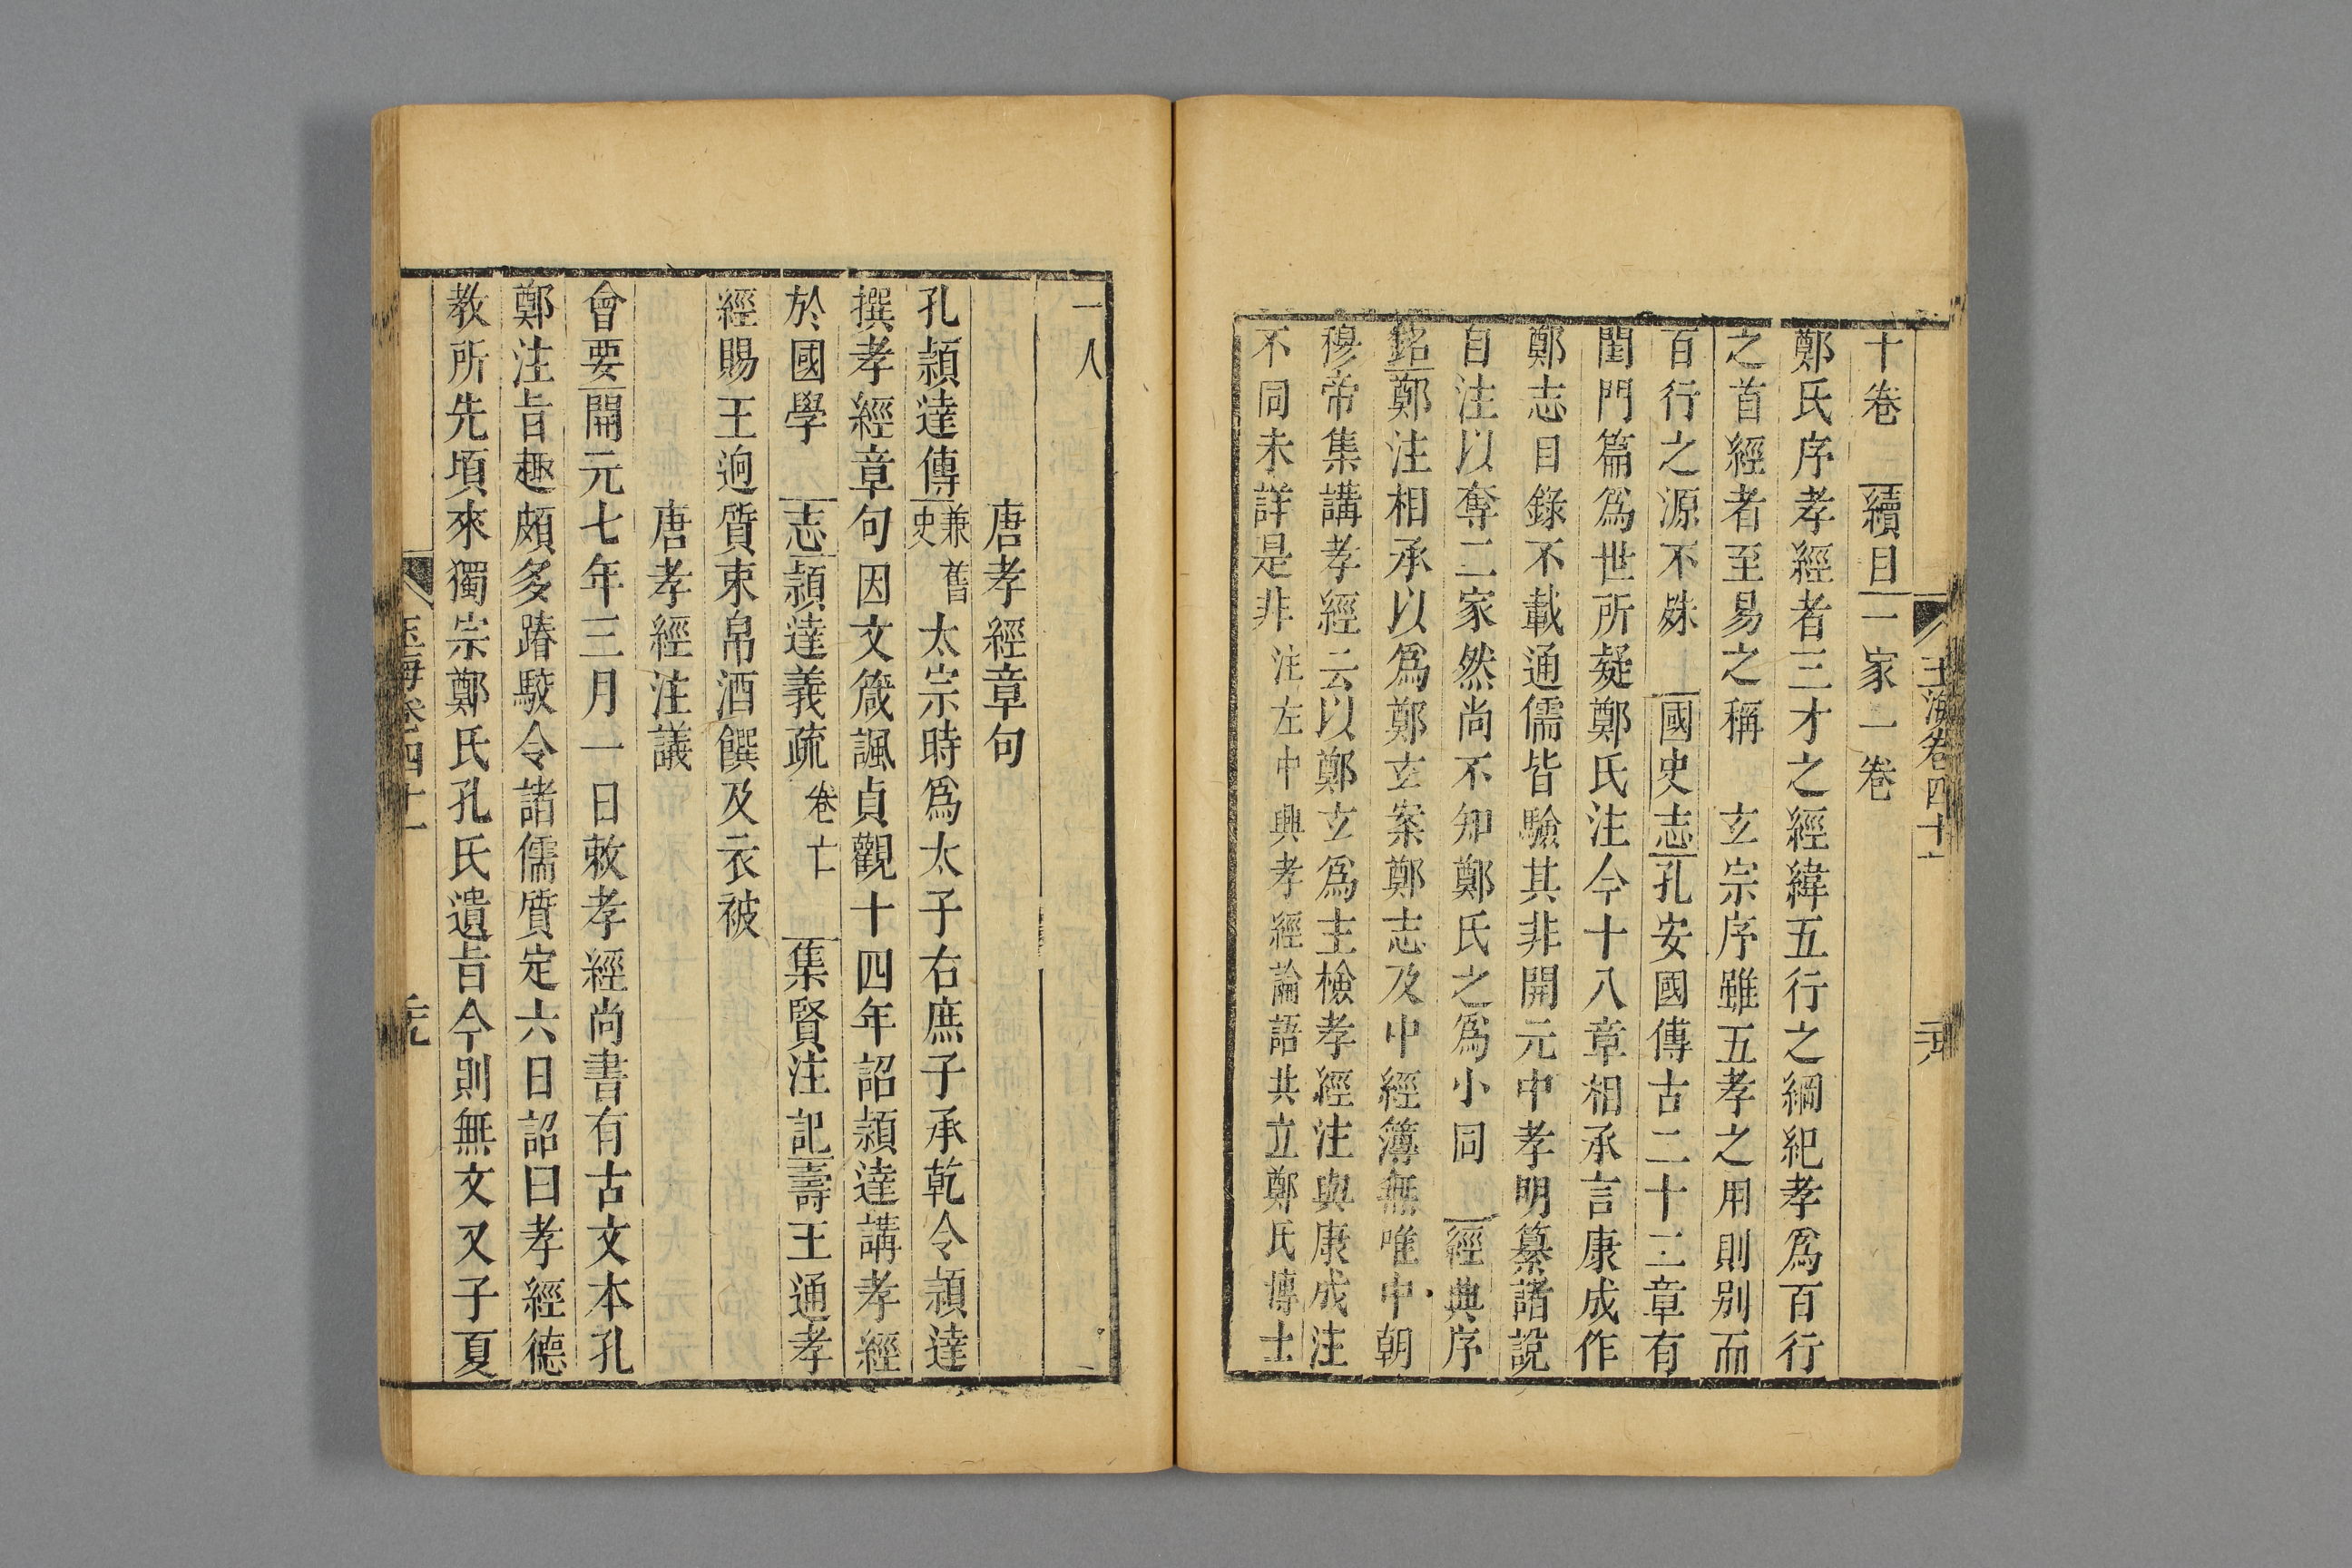 玉海卷四十一
十卷 續目一家一卷
鄭氏序孝經者三才之經緯五行之綱紀孝爲百行
之首經者至易之稱 玄宗序雖五孝之用則别而
百行之源不殊 國史志孔安國傳古二十二章有
閨門篇爲世所疑鄭氏注今十八章相承言康成作
鄭志目錄不載通儒皆驗其非開元中孝明纂諸說
自注以奪二家然尚不知鄭氏之爲小同 經典序
銘鄭注相承以爲鄭玄案鄭志及中經簿無唯中朝
穆帝集講孝經云以鄭玄爲主檢孝經注與康成注
不同未詳是非注左中興孝經論語共立鄭氏博士
一人
唐孝經章句
孔頴達傳兼舊史太宗時爲太子右庶子承乾令頴達
撰孝經章句因文箴諷貞觀十四年詔頴達講孝經
於國學 志頴達義疏卷亡 集賢注記壽王通孝
經賜王迥質束帛酒饌及衣被
唐孝經注議
會要開元七年三月一日敕孝經尚書有古文本孔
鄭注旨趣頗多踳駮令諸儒質定六日詔曰孝經德
教所先頃來獨宗鄭氏孔氏遺旨今則無文又子夏
玉海卷四十一